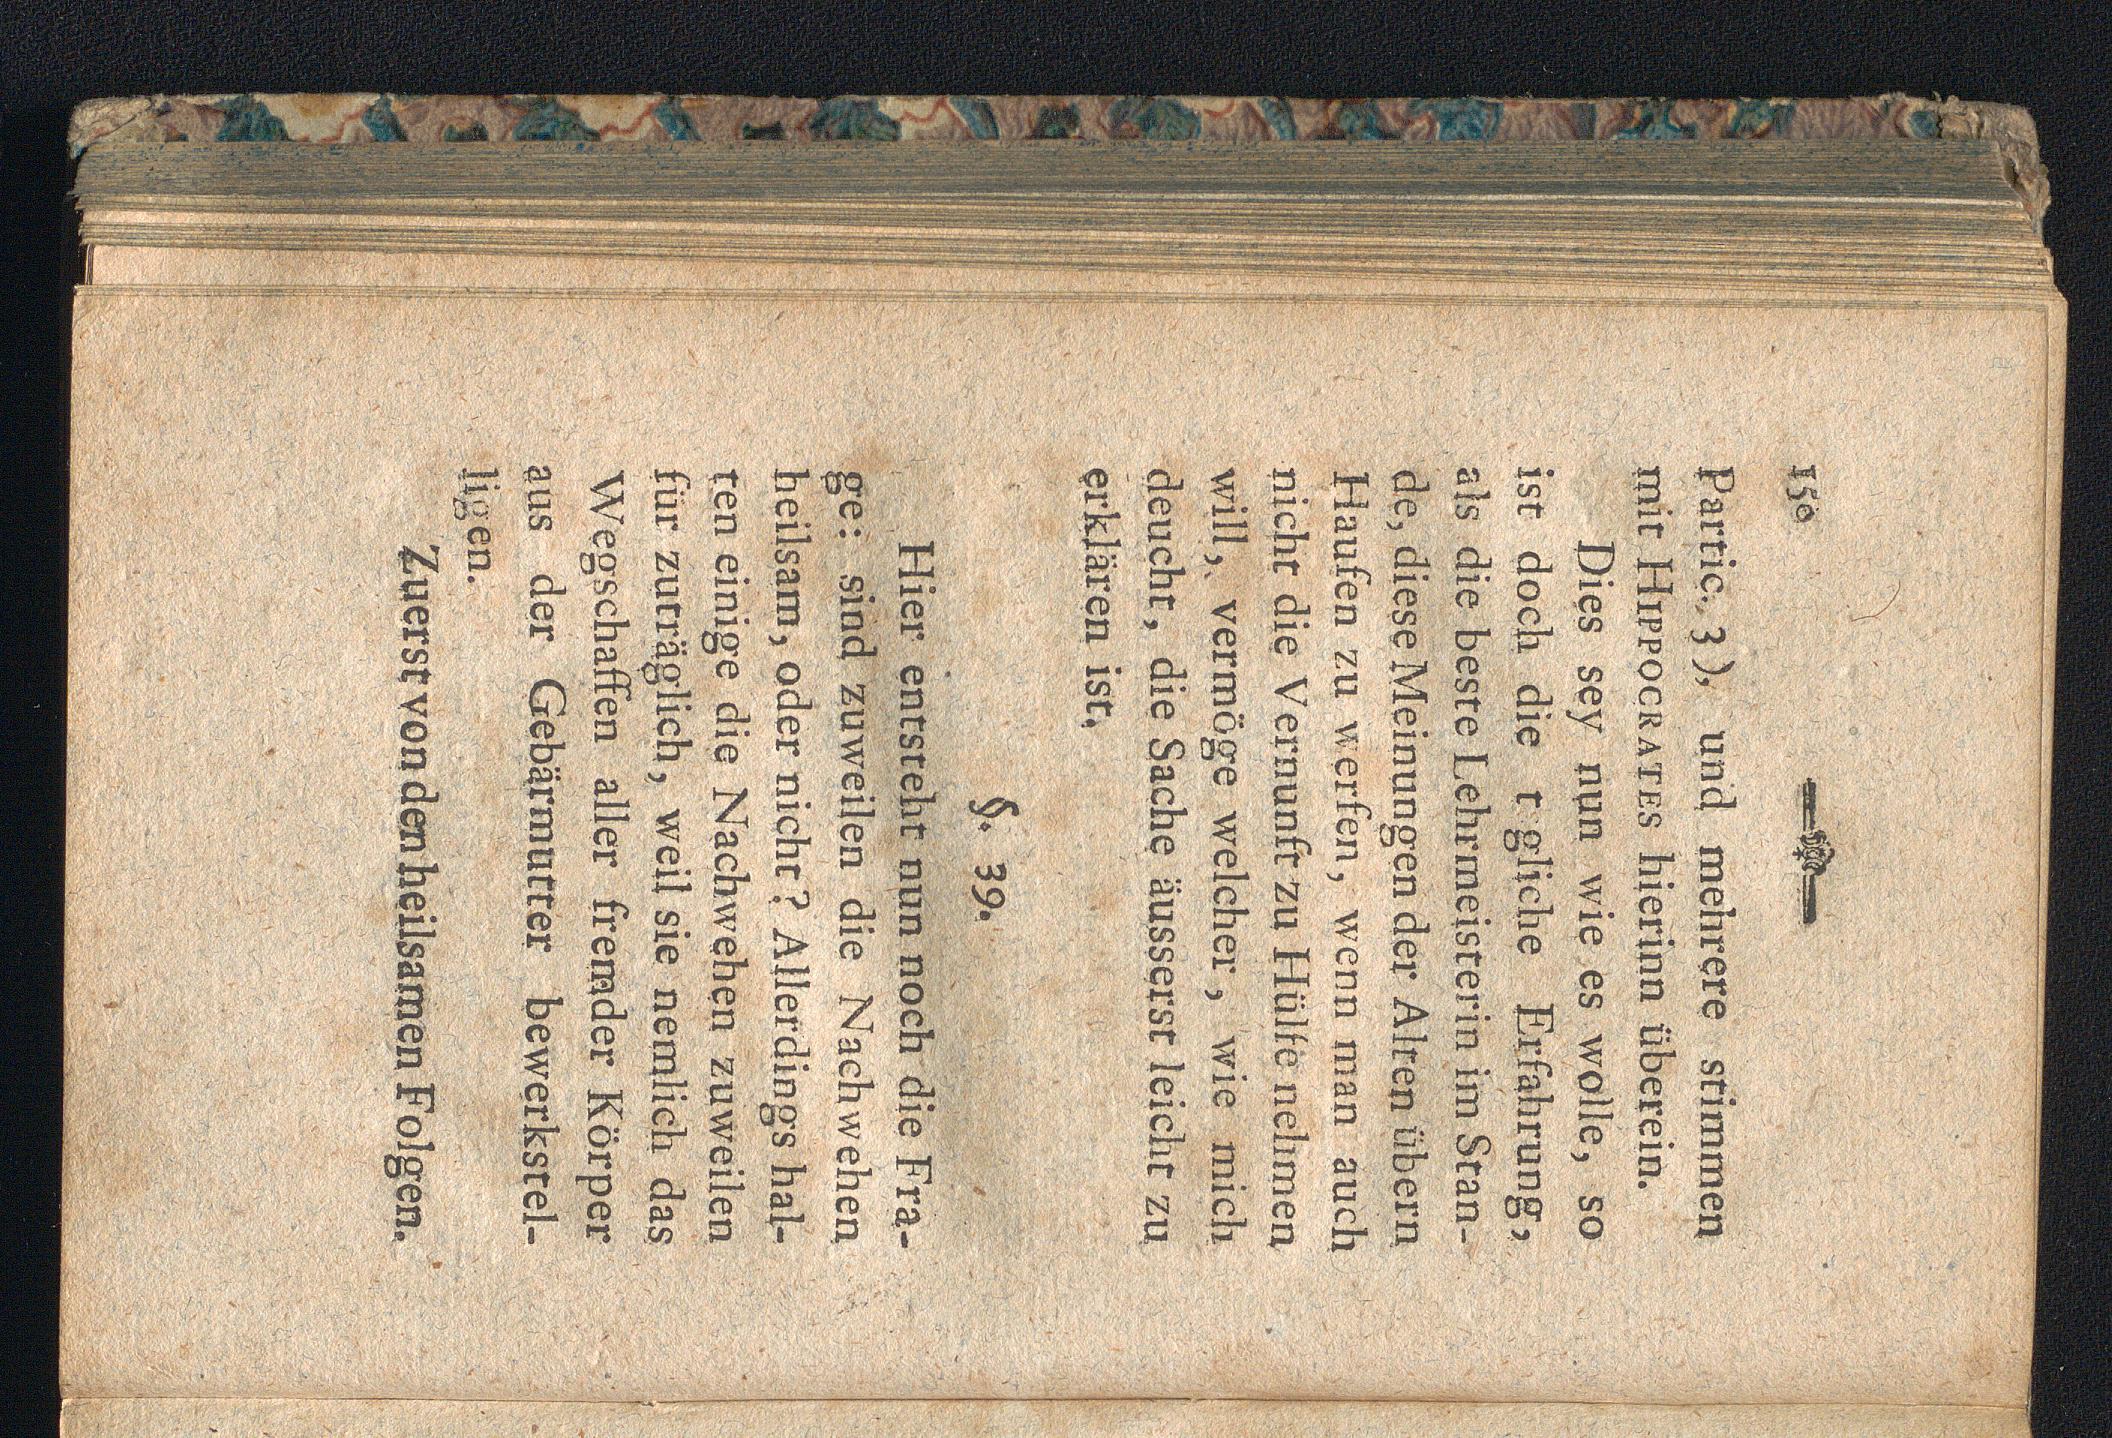 150
Partic. 3), und mehrere stimmen
mit HIPPOCRATES hierinn überein.
Dies sey nun wie es wolle, so
ist doch die t gliche Erfahrung,
als die beste Lehrmeisterin im Stan-
de, diese Meinungen der Alten übern
Haufen zu werfen, wenn man auch
nicht die Vernunft zu Hülfe nehmen
will, vermöge welcher, wie mich
deucht, die Sache äusserst leicht zu
erklären ist.
§. 39.
Hier entsteht nun noch die Fra-
ge: sind zuweilen die Nachwehen
heilsam, oder nicht? Allerdings hal-
ten einige die Nachwehen zuweilen
für zuträglich, weil sie nemlich das
Wegschaffen aller fremder Körper
aus der Gebärmutter bewerkstel-
ligen.
Zuerst von den heilsamen Folgen.